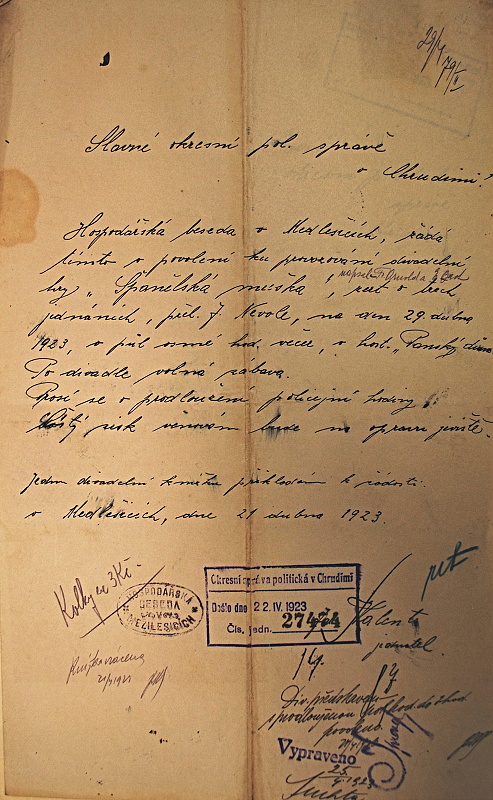 29/4
Slavné okresní pol. správě
v Chrudimi!
Hospodářská beseda v Medlešicích, žádá
tímto o povolení ku provozování divadelní
hry „Španělská muška", žert o třech
jednáních, přel. J. Nevole, na den 29. dubna
1923, o půl osmé hod. večer, v host. „Panský dům
Po divadle volná zábava.
Prosí se o prodloužení policejní hodiny.
Čistý zisk věnován bude na opravu jeviště.
Jednu divadelní knížku přikládám k žádosti.
v Medlešicích, dne 21 dubna 1923.
Kolky za 3 Kč
HOSPODÁŘSKÁ
BESEDA
Okresní správa politická v Chrudimi
Došlo dne 22. IV. 1923
Čís. jedn. 27474
Valenta
jednatel.
Knížka vrácena
Vypraveno
25